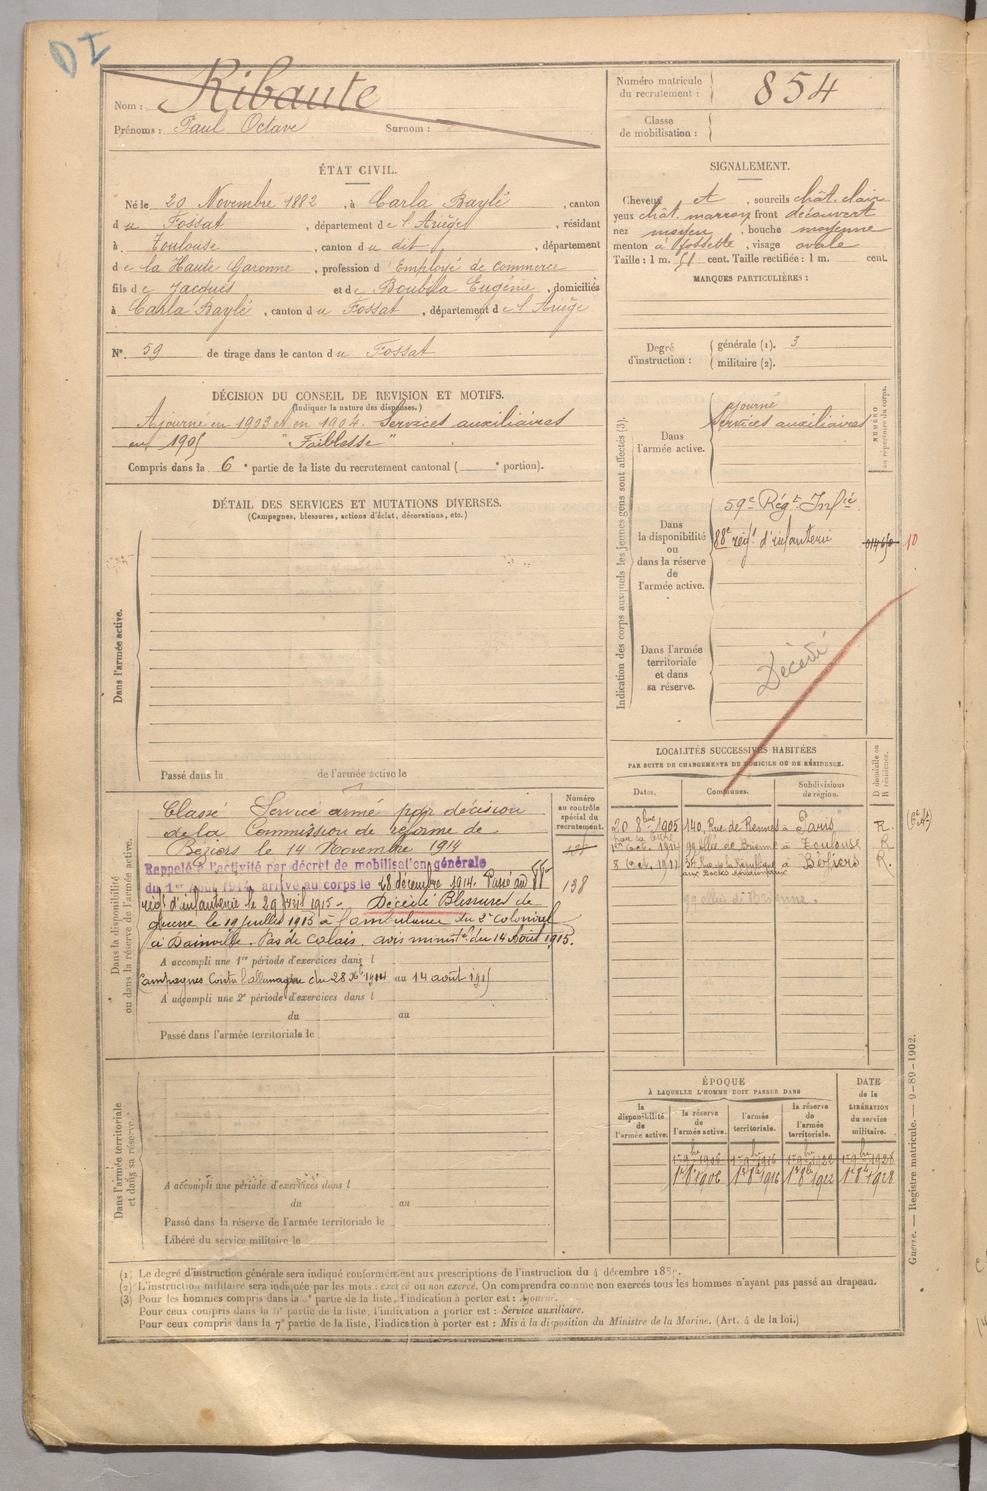 DI
Nom : Ribaute
Prénoms : Paul Octave Surnom :
Numéro matricule du recrutement : 854
Classe de mobilisation :
ÉTAT CIVIL.
Né le 20 Novembre 1882, à Carla Baylé, canton
du Fossat, département de l'Ariège, résidant
à Toulouse, canton du dit, département
de la Haute Garonne, profession d'Employé de commerce
fils de Jacques et de Boubila Eugénie, domiciliés
à Carla Baylé, canton du Fossat, département de l'Ariège
N°. 59 de tirage dans le canton du Fossat
SIGNALEMENT.
Cheveux et, sourcils chât. clair
yeux chât. marron front découvert
nez moyen, bouche moyenne
menton à fossette, visage ovale
Taille : 1 m. 51 cent. Taille rectifiée : 1 m. cent.
MARQUES PARTICULIÈRES :
Degré d'instruction : générale (1). 3
militaire (2).
DÉCISION DU CONSEIL DE REVISION ET MOTIFS.
(Indiquer la nature des dispenses.)
Ajourné en 1903 et en 1904. Services auxiliaires
en 1905 "Faiblesse"
Compris dans la 6e partie de la liste du recrutement cantonal ( e portion).
DÉTAIL DES SERVICES ET MUTATIONS DIVERSES.
(Campagnes, blessures, actions d'éclat, décorations, etc.)
Dans l'armée active.
Passé dans la de l'armée active le
Indication des corps auxquels les jeunes gens sont affectés (3).
Dans l'armée active.
ajourné
Services auxiliaires
NUMÉRO au répertoire du corps.
Dans la disponibilité ou dans la réserve de l'armée active.
59e Régt Infie
88e régt d'infanterie
10
Dans l'armée territoriale et dans sa réserve.
Décédé
LOCALITÉS SUCCESSIVES HABITÉES
PAR SUITE DE CHANGEMENTS DE DOMICILE OU DE RÉSIDENCE.
Dates. Communes. Subdivisions de région. D domicile ou R résidence.
20 8bre 1905 140, Rue de Rennes à Paris R.
99 allée de Brienne à Toulouse R.
8 Rue de la République à Béziers R.
99 allée de Brienne.
Dans la disponibilité ou dans la réserve de l'armée active.
Numéro au contrôle spécial du recrutement.
138
Classé Service armé par décision
de la Commission de réforme de
Béziers le 14 Novembre 1914
Rappelé à l'activité par décret de mobilisation générale
du 1er Août 1914, arrivé au corps le 28 décembre 1914. Passé au 88e
régt d'infanterie le 29 avril 1915. Décédé Blessures de
guerre le 19 juillet 1915 à l'ambulance du 2e colonial
à Dainville. Pas de Calais. avis ministel du 14 Août 1915.
A accompli une 1re période d'exercices dans l
Campagnes Contre l'allemagne du 28 Xbre 1914 au 14 août 1915
A accompli une 2e période d'exercices dans l
du au
Passé dans l'armée territoriale le
Dans l'armée territoriale et dans sa réserve.
A accompli une période d'exercices dans l
du au
Passé dans la réserve de l'armée territoriale le
Libéré du service militaire le
ÉPOQUE
À LAQUELLE L'HOMME DOIT PASSER DANS
DATE de la LIBÉRATION du service militaire.
la disponibilité de l'armée active. la réserve de l'armée active. l'armée territoriale. la réserve de l'armée territoriale.
1er 9bre 1906 1er 9bre 1916 1er 9bre 1922 1er 9bre 1928
1er 8bre 1906 1er 8bre 1916 1er 8bre 1922 1er 8bre 1928
Guerre. — Registre matricule. — 9-89-1902.
(1) Le degré d'instruction générale sera indiqué conformément aux prescriptions de l'instruction du 4 décembre
(2) L'instruction militaire sera indiquée par les mots : exercé ou non exercé. On comprendra comme non exercés tous les hommes n'ayant pas passé au drapeau.
(3) Pour les hommes compris dans la partie de la liste, l'indication à porter est : Ajourné.
Pour ceux compris dans la 6e partie de la liste, l'indication à porter est : Service auxiliaire.
Pour ceux compris dans la 7e partie de la liste, l'indication à porter est : Mis à la disposition du Ministre de la Marine. (Art. 4 de la loi.)